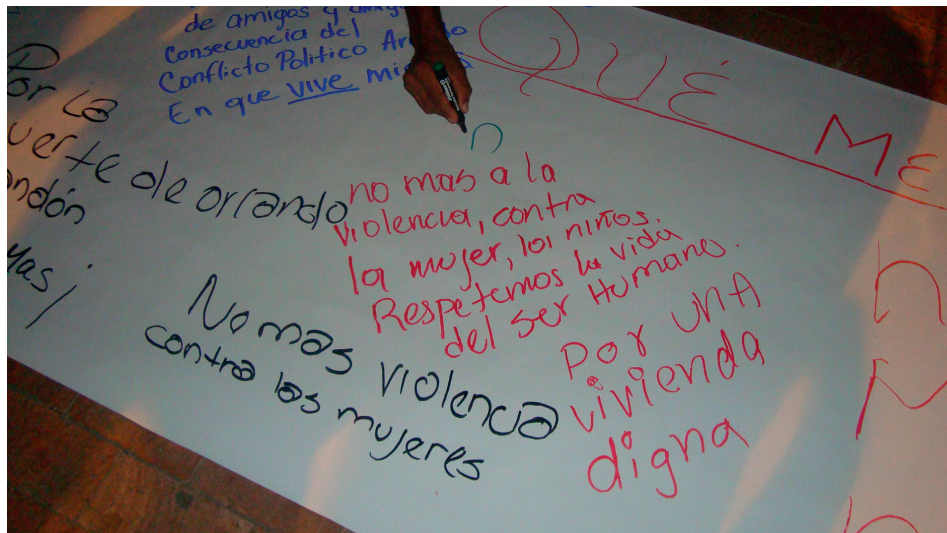 de amigos y
Consecuencia del
Conflicto Politico
En que vive
QUÉ ME
Por la
de orlando
n
no mas a la
violencia, contra
la mujer, los niños.
Respetemos la vida
del ser Humano.
No mas violencia
contra las mujeres
Por unA
vivienda
digna